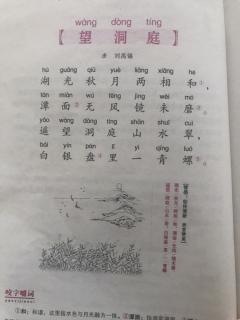 wàng dòng tíng
【望洞庭】
唐 刘禹锡
hú guāng qiū yuè liǎng xiāng hé
湖光秋月两相和①
tán miàn wú fēng jìng wèi mó
潭面②无风镜未磨③
yáo wàng dòng tíng shān shuǐ cuì
遥望洞庭山水翠
bái yín pán lǐ yì qīng luó
白银盘里一青螺
咬字嚼词
①和:和谐,这里指水色与月光融为一体。②潭面: